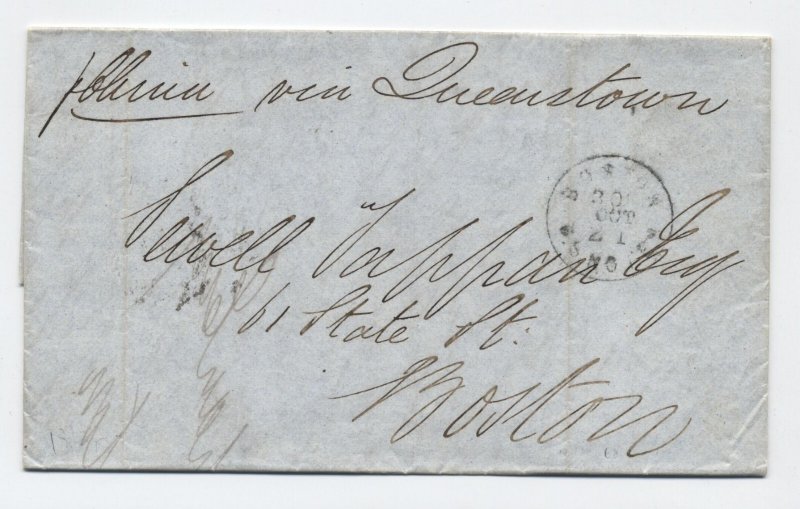 p China via Queenstown
Sewell Tappan Esq
61 State St.
Boston
BOSTON
30
OCT
21